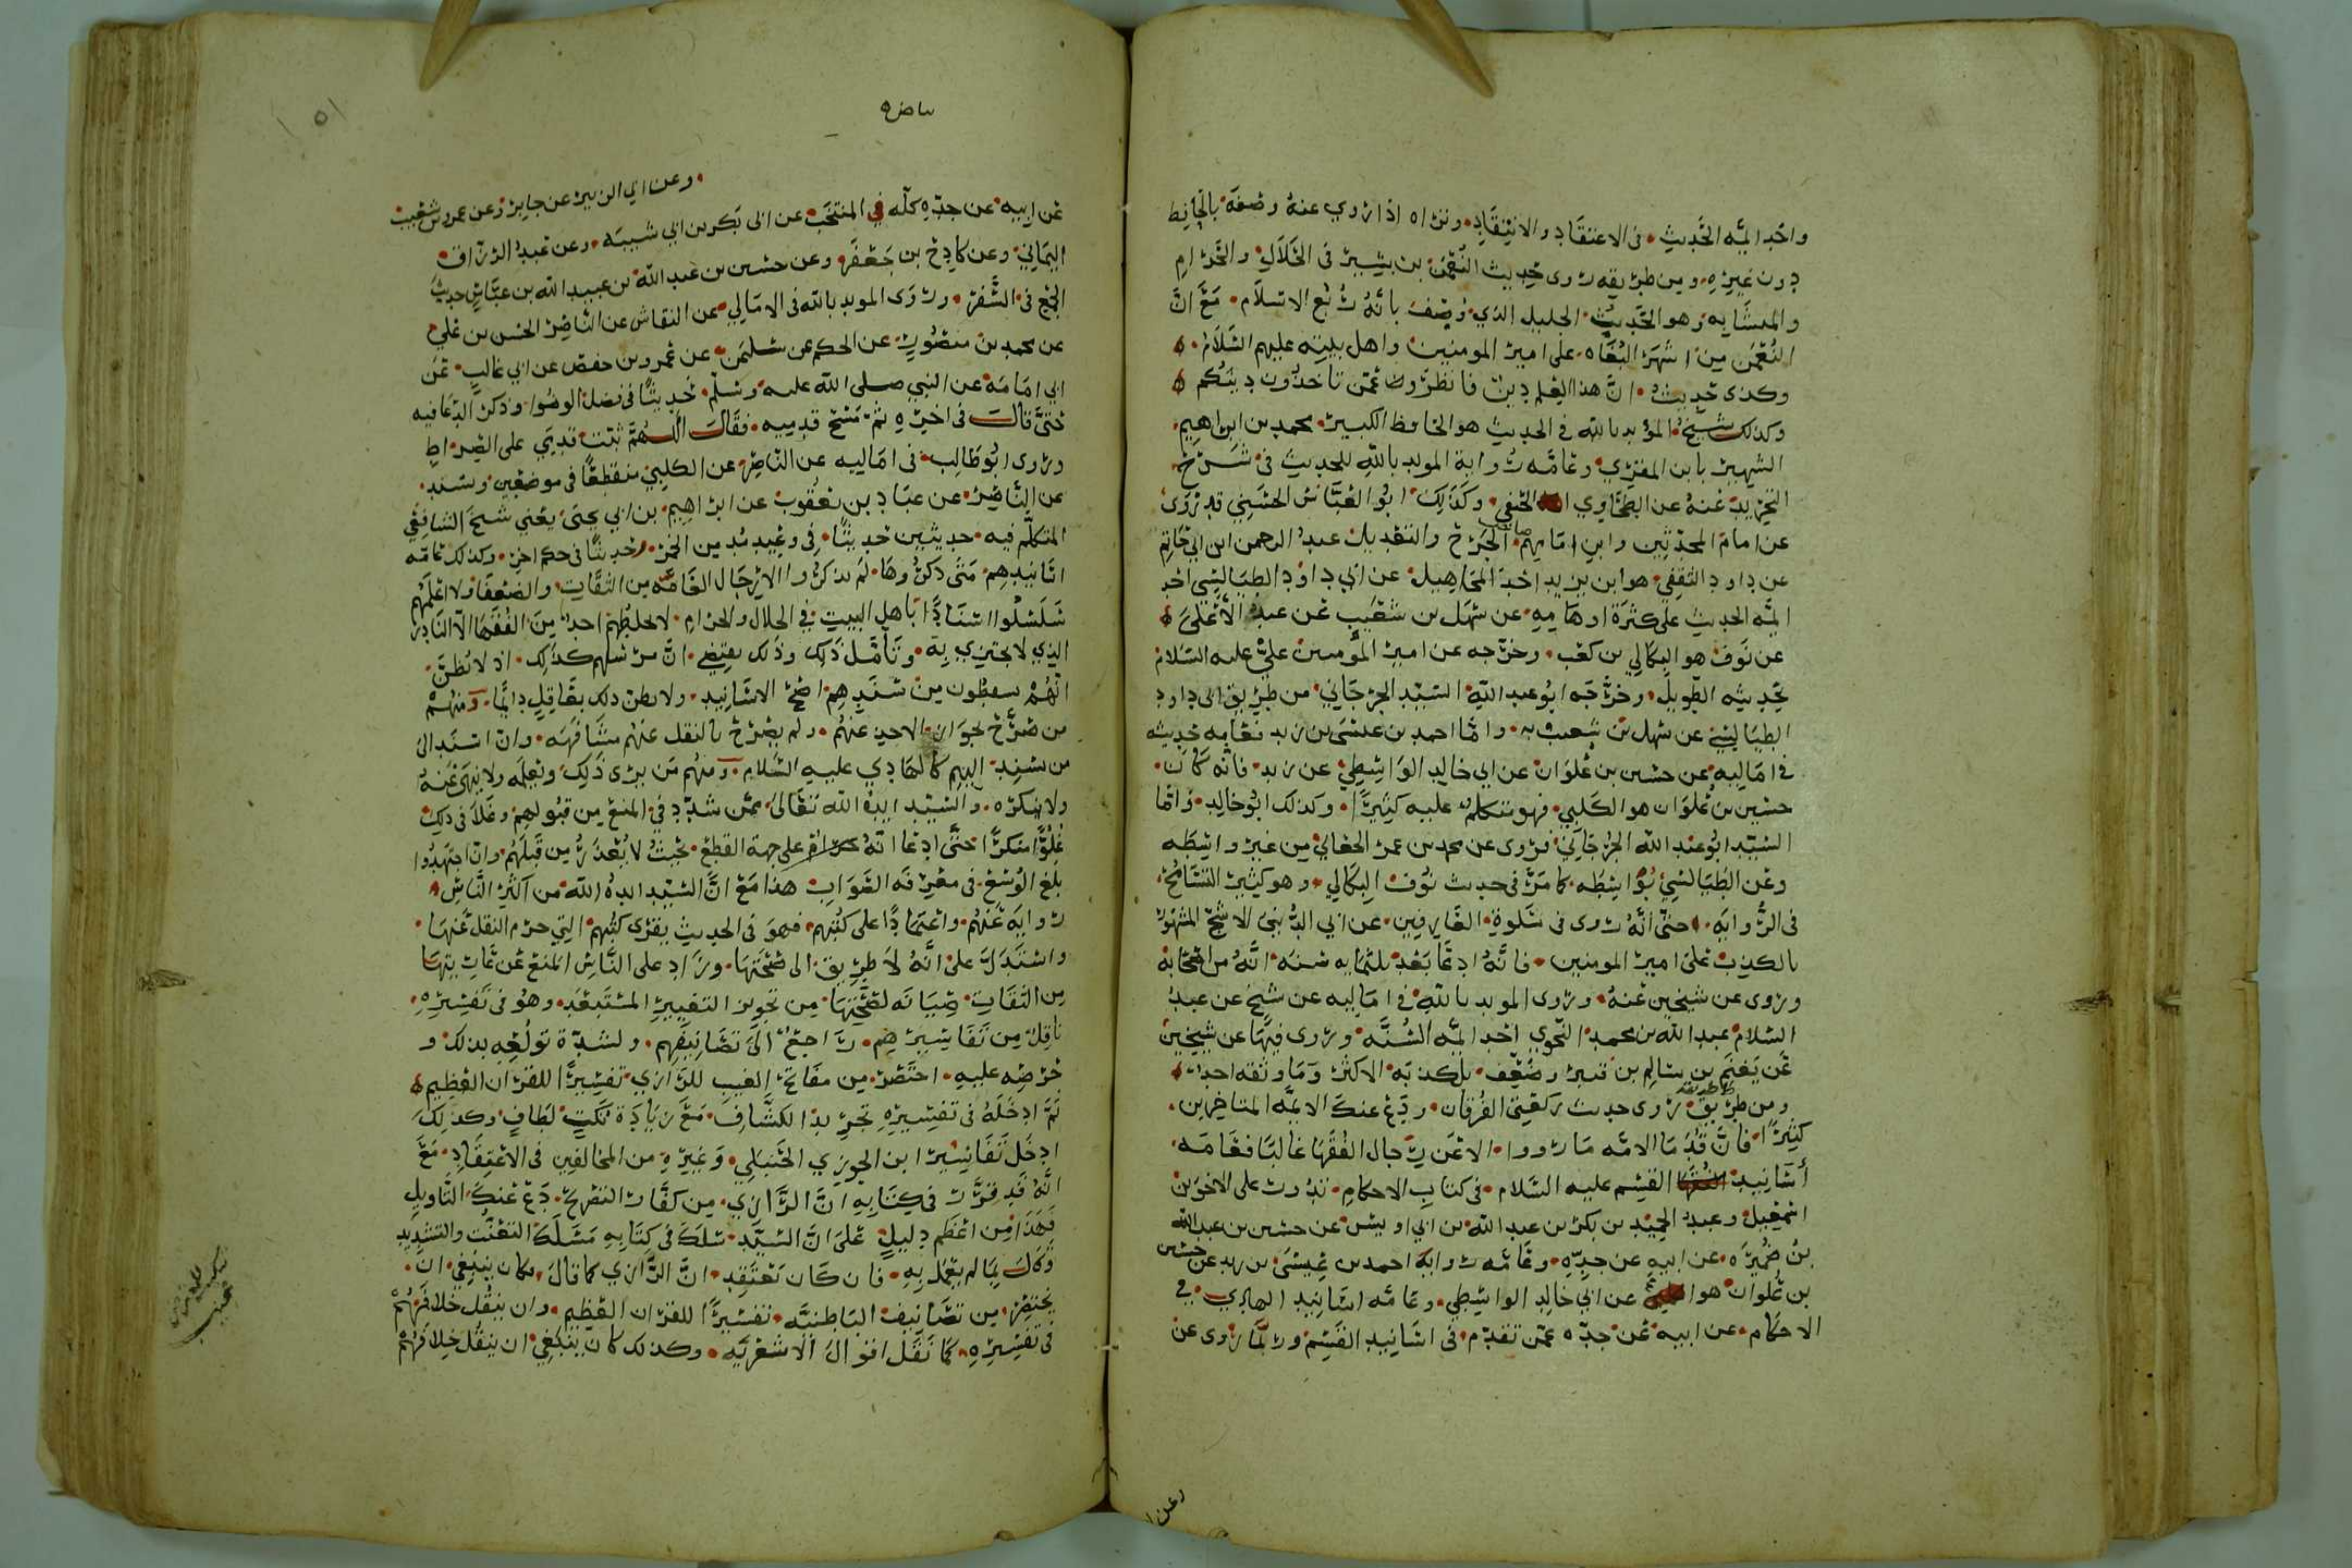 واحد ايمه الحديث في الاعتقاد والانتقاد وتراه اذا روي عنه وصفه بالحافظ
دون غيره ومن طريقه روى حديث النعمن بن بشير في الحلال والحرام
والمتشابه وهو الحديث الجليل الذي وصف بانه ربع الاسلام مع ان
النعمن من اشهر البغاه على امير المومنين واهل بيته عليهم السلام
وكذى حديث ان هذا العلم دين فانظرون عمن تاخذون دينكم
وكذلك شيخ المؤيد بالله في الحديث هو الحافظ الكبير محمد بن ابراهيم
الشهير بابن المقري وعامه رواية المويد بالله للحديث في شرح
التجريد عنه عن الطحاوي الحنفي وكذلك ابو العباس الحسني قد روى
عن امام المحدثين وابن امامهم الجرح والتعديل عبد الرحمن ابن ابي حاتم
عن داود الثقفي هو ابن يزيد احد المجاهيل عن ابي داود الطيالسي احد
ايمه الحديث على كثرة اوهامه عن سهل بن شعيب عن عبد الاعلى
عن نوف هو البكالي بن كعب وخرجه عن امير المؤمنين علي عليه السلام
بحديثه الطويل وخرجه ابو عبد الله السيد الجرجاني من طريق ابى داود
الطيالسي عن سهل بن شعيب به واما احمد بن عيسى بن زيد فعامه حديثه
في اماليه عن حسين بن علوان عن ابي خالد الواسطي عن زيد فانه كان
حسين بن علوان هو الكلبي فهو متكلم عليه كثيرا وكذلك ابو خالد واما
السيد ابو عبد الله الجرجاني فروى عن محمد بن عمر الجعابي من غير واسطه
وعن الطيالسي بواسطه كما مر في حديث نوف البكالي وهو كثير التسامح
في الروايه حتى انه روى في سلوة العارفين عن ابي الدنيى الاشج المشهور
بالكذب على امير المومنين فانه ادعا بعد ثلثمايه سنه انه من اصحابه
وروى عن شيخين عنه وروى المويد بالله في اماليه عن شيخ عن عبد
السلام عبد الله بن محمد النحوي احد ايمه السنه وروى فيها عن شيخين
عن يغنم بن سالم بن قنبر وضعف بل كذبه الاكثر وما وثقه احد
ومن طريق طريقه روى حديث ركعتي الفرقان ودع عنك الايمه المتاخرين
كثيرا فان قدما الامه ما رووا الا عن رجال الفقها غالبا فعامه
أسانيد القسم عليه السلام في كتاب الاحكام تدور على الاخوين
اسمعيل وعبد الحميد بن بكر بن عبد الله بن ابي اويس عن حسين بن عبد الله
بن ضميره عن ابيه عن جده وعامه رواية احمد بن عيسى بن زيد عن حسين
بن علوان هو عن ابي خالد الواسطي وعامه اسانيد الهادي في
الاحكام عن ابيه عن جده عمن تقدم في اسانيد القسم وربما روى عن
وعن ا
بياض
١٥١
وعن ابي الزبير عن جابر وعن عمرو بن شعيب
عن ابيه عن جده كله في المنتخب عن ابى بكر بن ابي شيبه وعن عبد الرزاق
اليماني وعن كادح بن جعفر وعن حسين بن عبد الله بن عبيد الله بن عباس حديث
الجمع في السفر وروى المويد بالله في الامالي عن النقاش عن الناصر الحسن بن علي
عن محمد بن منصور عن الحكم عن سليمن عن عمرو بن حفص عن ابي غالب عن
ابي امامه عن النبي صلى الله عليه وسلم حديثا في فضل الوضوا وذكر الدعا فيه
حتى قال في اخره ثم مسح قدميه فقال اللهم ثبت قدمي على الصراط
وروى ابو طالب في اماليه عن الناصر عن الكلبي منقطعا في موضعين وبسند
عن الناصر عن عباد بن يعقوب عن ابراهيم بن ابي يحيى يعني شيخ الشافعي
المتكلم فيه حديثين حديثا في وعيد مدمن الخمر وحديثا في حكم اخر وكذلك عامه
اسانيدهم متى ذكروها لم يذكروا الا رجال العامه من الثقات والضعفا ولا اعلمهم
سلسلوا اسنادا باهل البيت في الحلال والحرام لا يخلطهم احد من الفقها الا النادر
الذي لا يجتزي به وتأمل ذلك وذلك يقتضي ان مرسلهم كذلك اذ لا يظن
انهم يسقطون من سندهم اصح الاسانيد ولا يظن ذلك بعاقل دائما ومنهم
من صرح بجواز الاخذ عنهم ولم يصرح بالنقل عنهم مشافهه وان استند الى
من يسند اليهم كالهادي عليه السلام ومنهم من يرى ذلك ويعلمه ولا ينهى عنه
ولا ينكره والسيد ايده الله تعالى ممن شدد في المنع من قبولهم وغلا في ذلك
غلوا منكرا حتى ادعا انه حرام على جهة القطع بحيث لا يعذر من قبلهم وان اجتهدوا
بلغ الوسع في معرفه الصواب هذا مع ان السيد ايده الله من اكثر الناس
روايه عنهم واعتمادا على كتبهم فهو في الحديث يقرى كتبهم التي حرم النقل عنها
واستدل على انه لا طريق الى صحتها وزاد على الناس المنع عن عاريتها
من الثقات صيانه لصحتها من تجويز التغيير المستبعد وهو في تفسيره
ناقل من تفاسيرهم راجع الى تصانيفهم ولشدة تولعه بذلك و
حرصه عليه اختصر من مفاتح الغيب للرازي تفسيرا للقران العظيم
ثم ادخله في تفسيره تجريد الكشاف مع زيادة نكت لطاف وكذلك
ادخل تفاسير ابن الجوزي الحنبلي وغيره من المخالفين في الاعتقاد مع
انه قد قرر في كتابه ان الرازي من كفار التصريح دع عنك التاويل
فهذا من اعظم دليل على ان السيد سلك في كتابه مسلك التعنت والتشديد
وقال بما لم يعمل به فان كان يعتقد ان الرازي كما قال فكان ينبغي ان
يختصر من تصانيف الباطنيه تفسيرا للقران العظيم وان ينقل خلافهم
في تفسيره كما نقل اقوال الاشعريه وكذلك كان ينبغي ان ينقل خلافهم